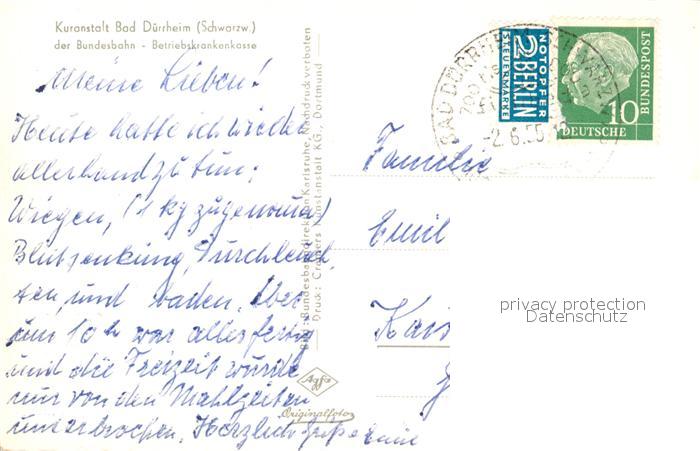 Kuranstalt Bad Dürrheim (Schwarzw.)
der Bundesbahn - Betriebskrankenkasse
Meine Lieben!
Heute hatte ich wieder
allerhand zu tun;
Wiegen, (1 kg zugenomm)
Blutsenkung, Durchleuch
ten, und baden. Aber
um 10 h war alles fertig
und die Freizeit wurde
nur von den Mahlzeiten
unterbrochen. Herzliche Grüße Emil
Bundesbahndirektion Karlsruhe, Nachdruck verboten
Druck: Cramers Kunstanstalt KG., Dortmund
Agfa
Originalfoto
NOTOPFER
2 BERLIN
STEUERMARKE
BAD DÜRRHEIM
-2.6.55
10
DEUTSCHE
BUNDESPOST
Familie
Emil
Kais
privacy protection
Datenschutz